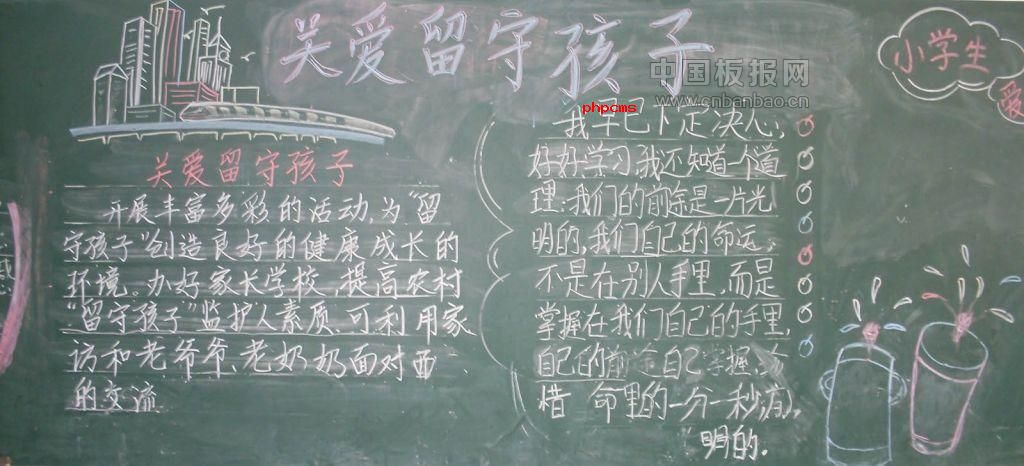 关爱留守孩子
中国板报网
www.cnbanbao.cn
phpcms
小学生
爱
关爱留守孩子
开展丰富多彩的活动,为“留
守孩子”创造良好的健康成长的
环境。办好家长学校,提高农村
“留守孩子”监护人素质,可利用家
访和老爷爷、老奶奶面对西
的交流
我早已下定决心,
好好学习,我还知道一个道
理:我们的前途是一片光
明的,我们自己的命运,
不是在别人手里,而是
掌握在我们自己的手里,
自己的前途自己掌握,
惜 命里的一分一秒,
明的.